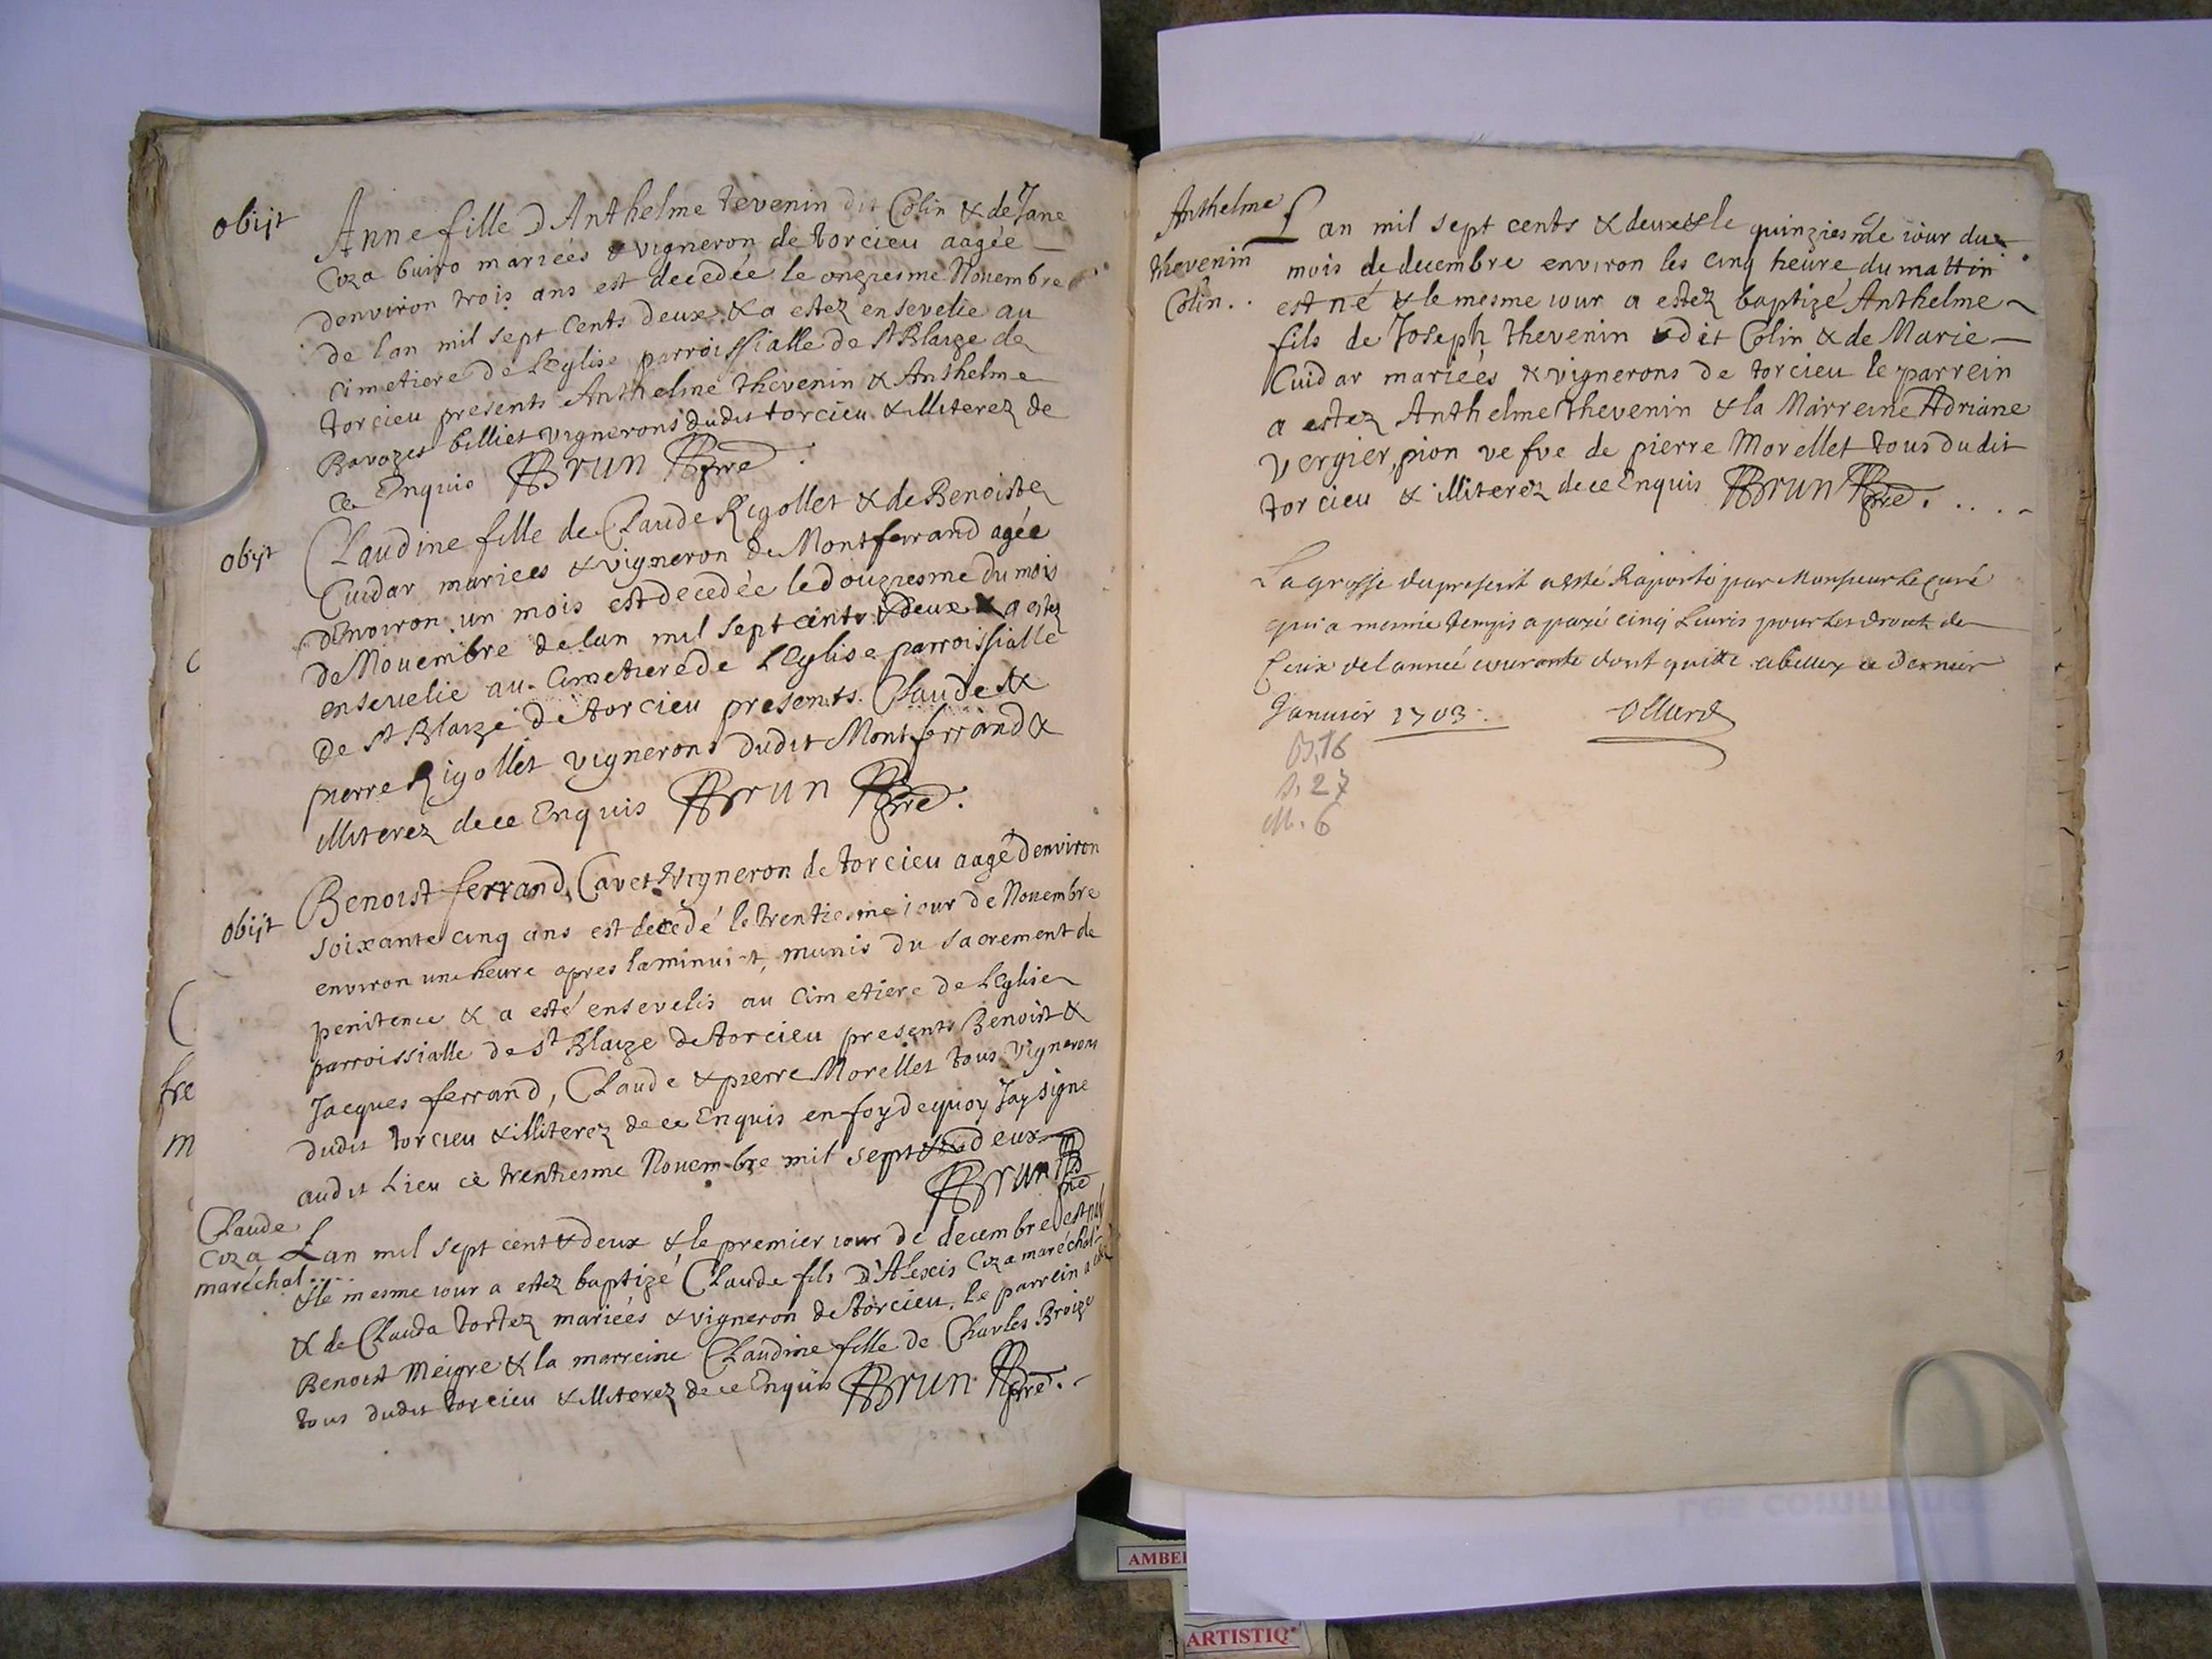 obijt
Anne fille D Anthelme tevenin dit Colin & de Jane
Coza buiro mariées & vigneron de torcieu aagée
denviron trois ans est decedée le onziesme Nouembre
de lan mil sept Cents deux & a estez ensevelie au
Cimetiere de LEglise parroissialle de St Blaize de
torcieu presents Anthelme thévenin & Anthelme
Bavozet billiet vignerons dudit torcieu & illiterez de
ce Enquis Brun pre
obijt
Claudine fille de Claude Rigollet & de Benoiste
Cuidar mariees & vigneron de Montferrand agée
d'Environ un mois est decedée le douziesme du mois
de Nouembre de lan mil sept cents & deux & a estez
enseuelie au Cimetiere de LEglise parroissialle
de St Blaize de torcieu presents Claude &
pierre Rigollet vignerons dudit Montferrand &
illiterez de ce Enquis Brun pre.
obijt
Benoist ferrand, Cavet vigneron de torcieu aagé denviron
soixante cinq ans est decedé le trentiesme iour de Nouembre
environ une heure apres la minuit, munis du sacrement de
penitence & a esté ensevelis au Cimetiere de LEglise
parroissialle de st Blaize de torcieu presents Benoist &
Jacques ferrand, Claude & pierre Morellet tous vignerons
dudit torcieu & illiterez de ce Enquis en foy de quoy Jay signe
audit Lieu ce trentiesme Nouembre mil sept deux
Brun pre
Claude
Coza
maréchal
Lan mil sept cent & deux & le premier iour de decembre est né
& le mesme iour a estez baptizé Claude fils D'Alexis Coza maréchal
& de Clauda tortez mariées & vigneron de torcieu, le parrein a
Benoist Meigre & la marreine Claudine fille de Charles Broize
tous dudit torcieu & illiterez de ce Enquis Brun pre.
fre
m
Anthelme
thevenin
Colin..
Lan mil sept cents & deux & le quinziesme iour du
mois de decembre environ les cinq heure du mattin
est né & le mesme iour a estez baptizé Anthelme
fils de Joseph thevenin dit Colin & de Marie
Cuidar mariées & vignerons de torcieu le parrein
a estez Anthelme thevenin & la Marreine Adriane
vergier, pion vefve de pierre Morellet tous dudit
torcieu & illiterez de ce Enquis Brun pre.
La grosse du present a esté Raporté par Monsieur le curé
qui a mesme temps a payé cinq Liures pour les droits de
Ceux de l année courante dont quitte a belley ce dernier
Januier 1703. Ollard
B. 16
S. 27
M. 6
AMBE
ARTISTIQ